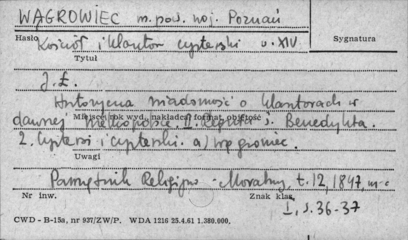 WĄGROWIEC m. pow. woj. Poznań
Hasło
Kościół i klasztor cysterski o. XIV
Sygnatura
Tytuł
J. Ł.
Historyczna wiadomość o klasztorach w
dawnej Wielkopolsce. II. Reguła s. Benedykta.
Miejsce, rok wyd., nakładca, format, objętość
2. Cystersi i Cysterki. a) Wągrowiec.
Uwagi
Pamiętnik Religijno-Moralny, t. 12, 1847,
Nr inw.
Znak klas.
I, s. 36-37
CWD - B-15a, nr 937/ZW/P. WDA 1216 25.4.61 1.380.000.